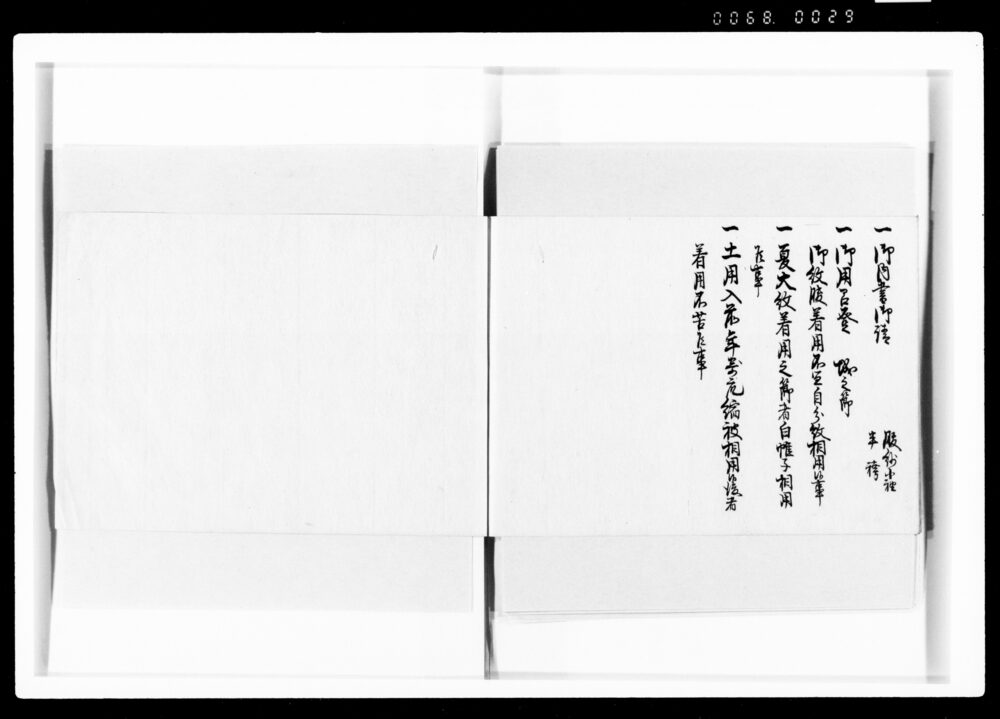 0068. 0029
一御内書御請
服紗小袖
半袴
一御用召登 城之節
御紋服着用不苦自分紋相用候事
一夏大紋着用之節者白帷子相用
候事
一土用入前年寄 縮被相用候後者
着用不苦候事